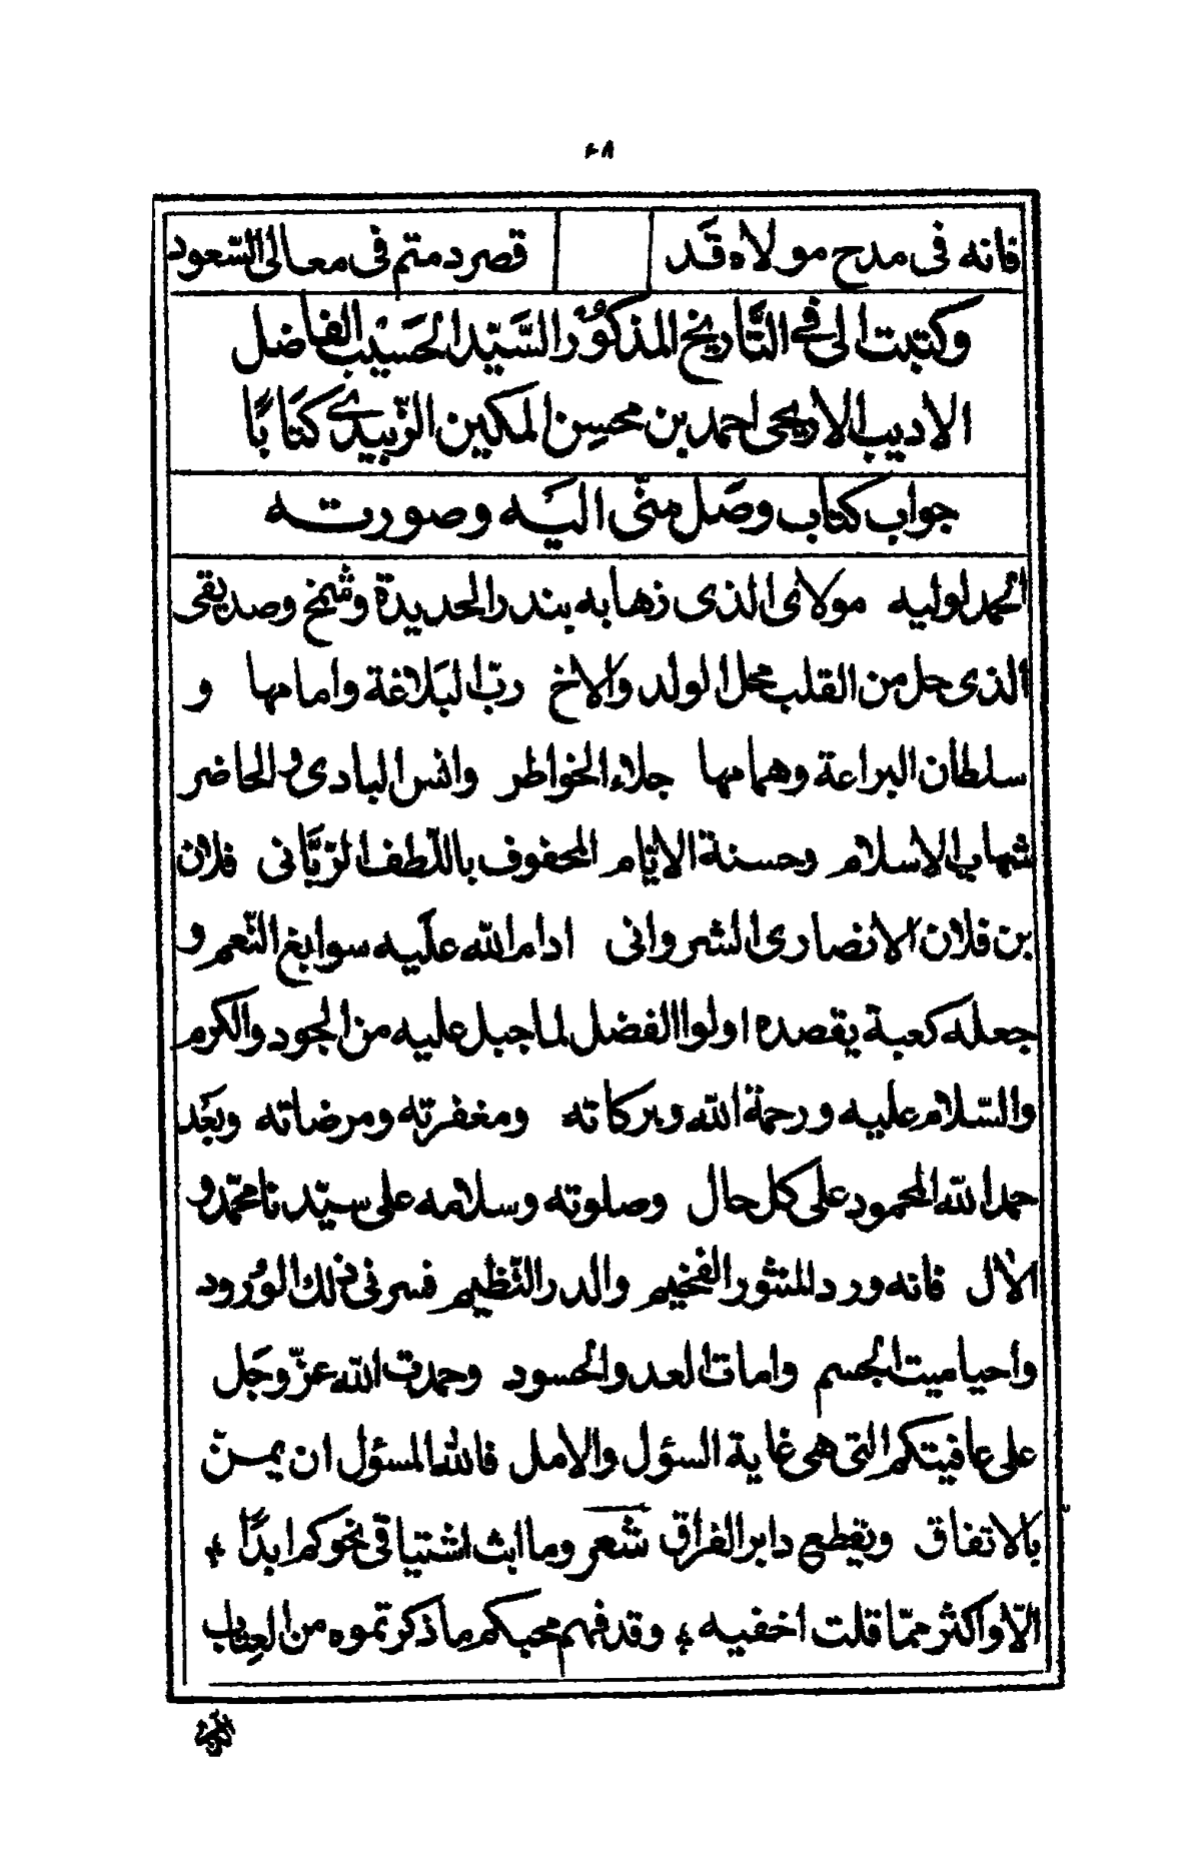 ٢٨
فانه فى مدح مولاه قد قصر دمتم فى معالى السّعود
وكتبت الى فى التّاريخ المذكور السَّيّد الحَسيْب الفاضل
الاديب الاريحى احمد بن محسِن المكين الزّبيدي كتَابًا
جواب كتاب وصَل منّى اليَه وصورته
الحمد لوليه مولاى الذى زها به بندر الحديدة وشمخ وصديقى
الذى حل من القلب محل الولد والاخ ربّ البَلاغة وامامها و
سلطان البراعة وهمامها جلاء الخواطر وانس البادى والحاضر
شهاب الاسلام وحسنة الايّام المحفوف باللّطف الرّبَّانى فلان
بن فلان الانصارى الشروانى ادام الله علَيه سوابغ النّعم و
جعله كعبة يقصده اولوا الفضل لما جبل عليه من الجود والكرم
والسّلام عليه ورحمة الله وبركاته ومغفرته ومرضاته وبَعَد
حمد الله المحمود على كل حال وصلوته وسلامه على سيّدنا محمّد و
الآل فانه ورد المنثور الفخيم والدر النّظيم فسرنى ذلك الوُرود
وأحيا ميت الجسم وامات العدو والحسود وحمدت الله عزّ وجَل
على عافيتكم التى هى غاية السؤل والامل فالله المسؤل ان يمنّ
بالاتفاق ويقطع دابر الفراق شعر وما ابث اشتياقى نحوكم ابدًا ؛
الّا واكثر ممّا قلت اخفيه ؛ وقد فهم محبكم ما ذكرتموه من العِتاب